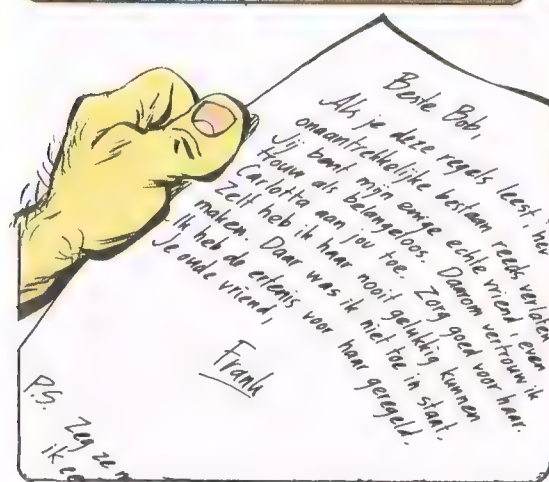 Beste Bob,
Als je deze regels leest,
onaantrekkelijke bestaan reeds verlaten
Jij bent mijn enige echte vriend even
trouw als belangeloos. Daarom vertrouw ik
Carlotta aan jou toe. Zorg goed voor haar.
Zelf heb ik haar nooit gelukkig kunnen
maken. Daar was ik niet toe in staat.
Ik heb de erfenis voor haar geregeld.
Je oude vriend,
Frank
P.S. Zeg ze
ik